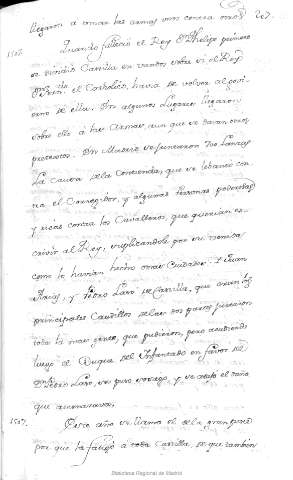 llegaron a tomar las armas unos contra otros 267.
1506. Quando fallecio el Rey Dn Phelipe primero
se dividio Castilla en vandos sobre si el Rey
el Catholico, havia de volver al govi-
erno de ella. En algunos Lugares llegaron
sobre ello a las Armas, aun que se davan otros
pretextos. En Madrid se juntaron 700 Lanzas
La Causa de la Contienda, que se levantó con-
tra el Corregidor, y algunas Personas poderosas
y ricas contra los Cavalleros, que querian es-
crivir al Rey, suplicandole por su venida
como lo havian hecho otras Ciudades. Juan
Arias, y Pedro Laso de Castilla, que eran los
principales Caudillos de las dos partes juntaron
toda la mas gente, que pudieron, pero acudiendo
luego el Duque del Infantado en favor de
Dn Pedro Laso, se puso sosiego, y se atajó el daño
que amenazava.
1507. Este año se llamo el de la gran peste
por que la fatigó a toda Castilla, de que tambien
Biblioteca Regional de Madrid